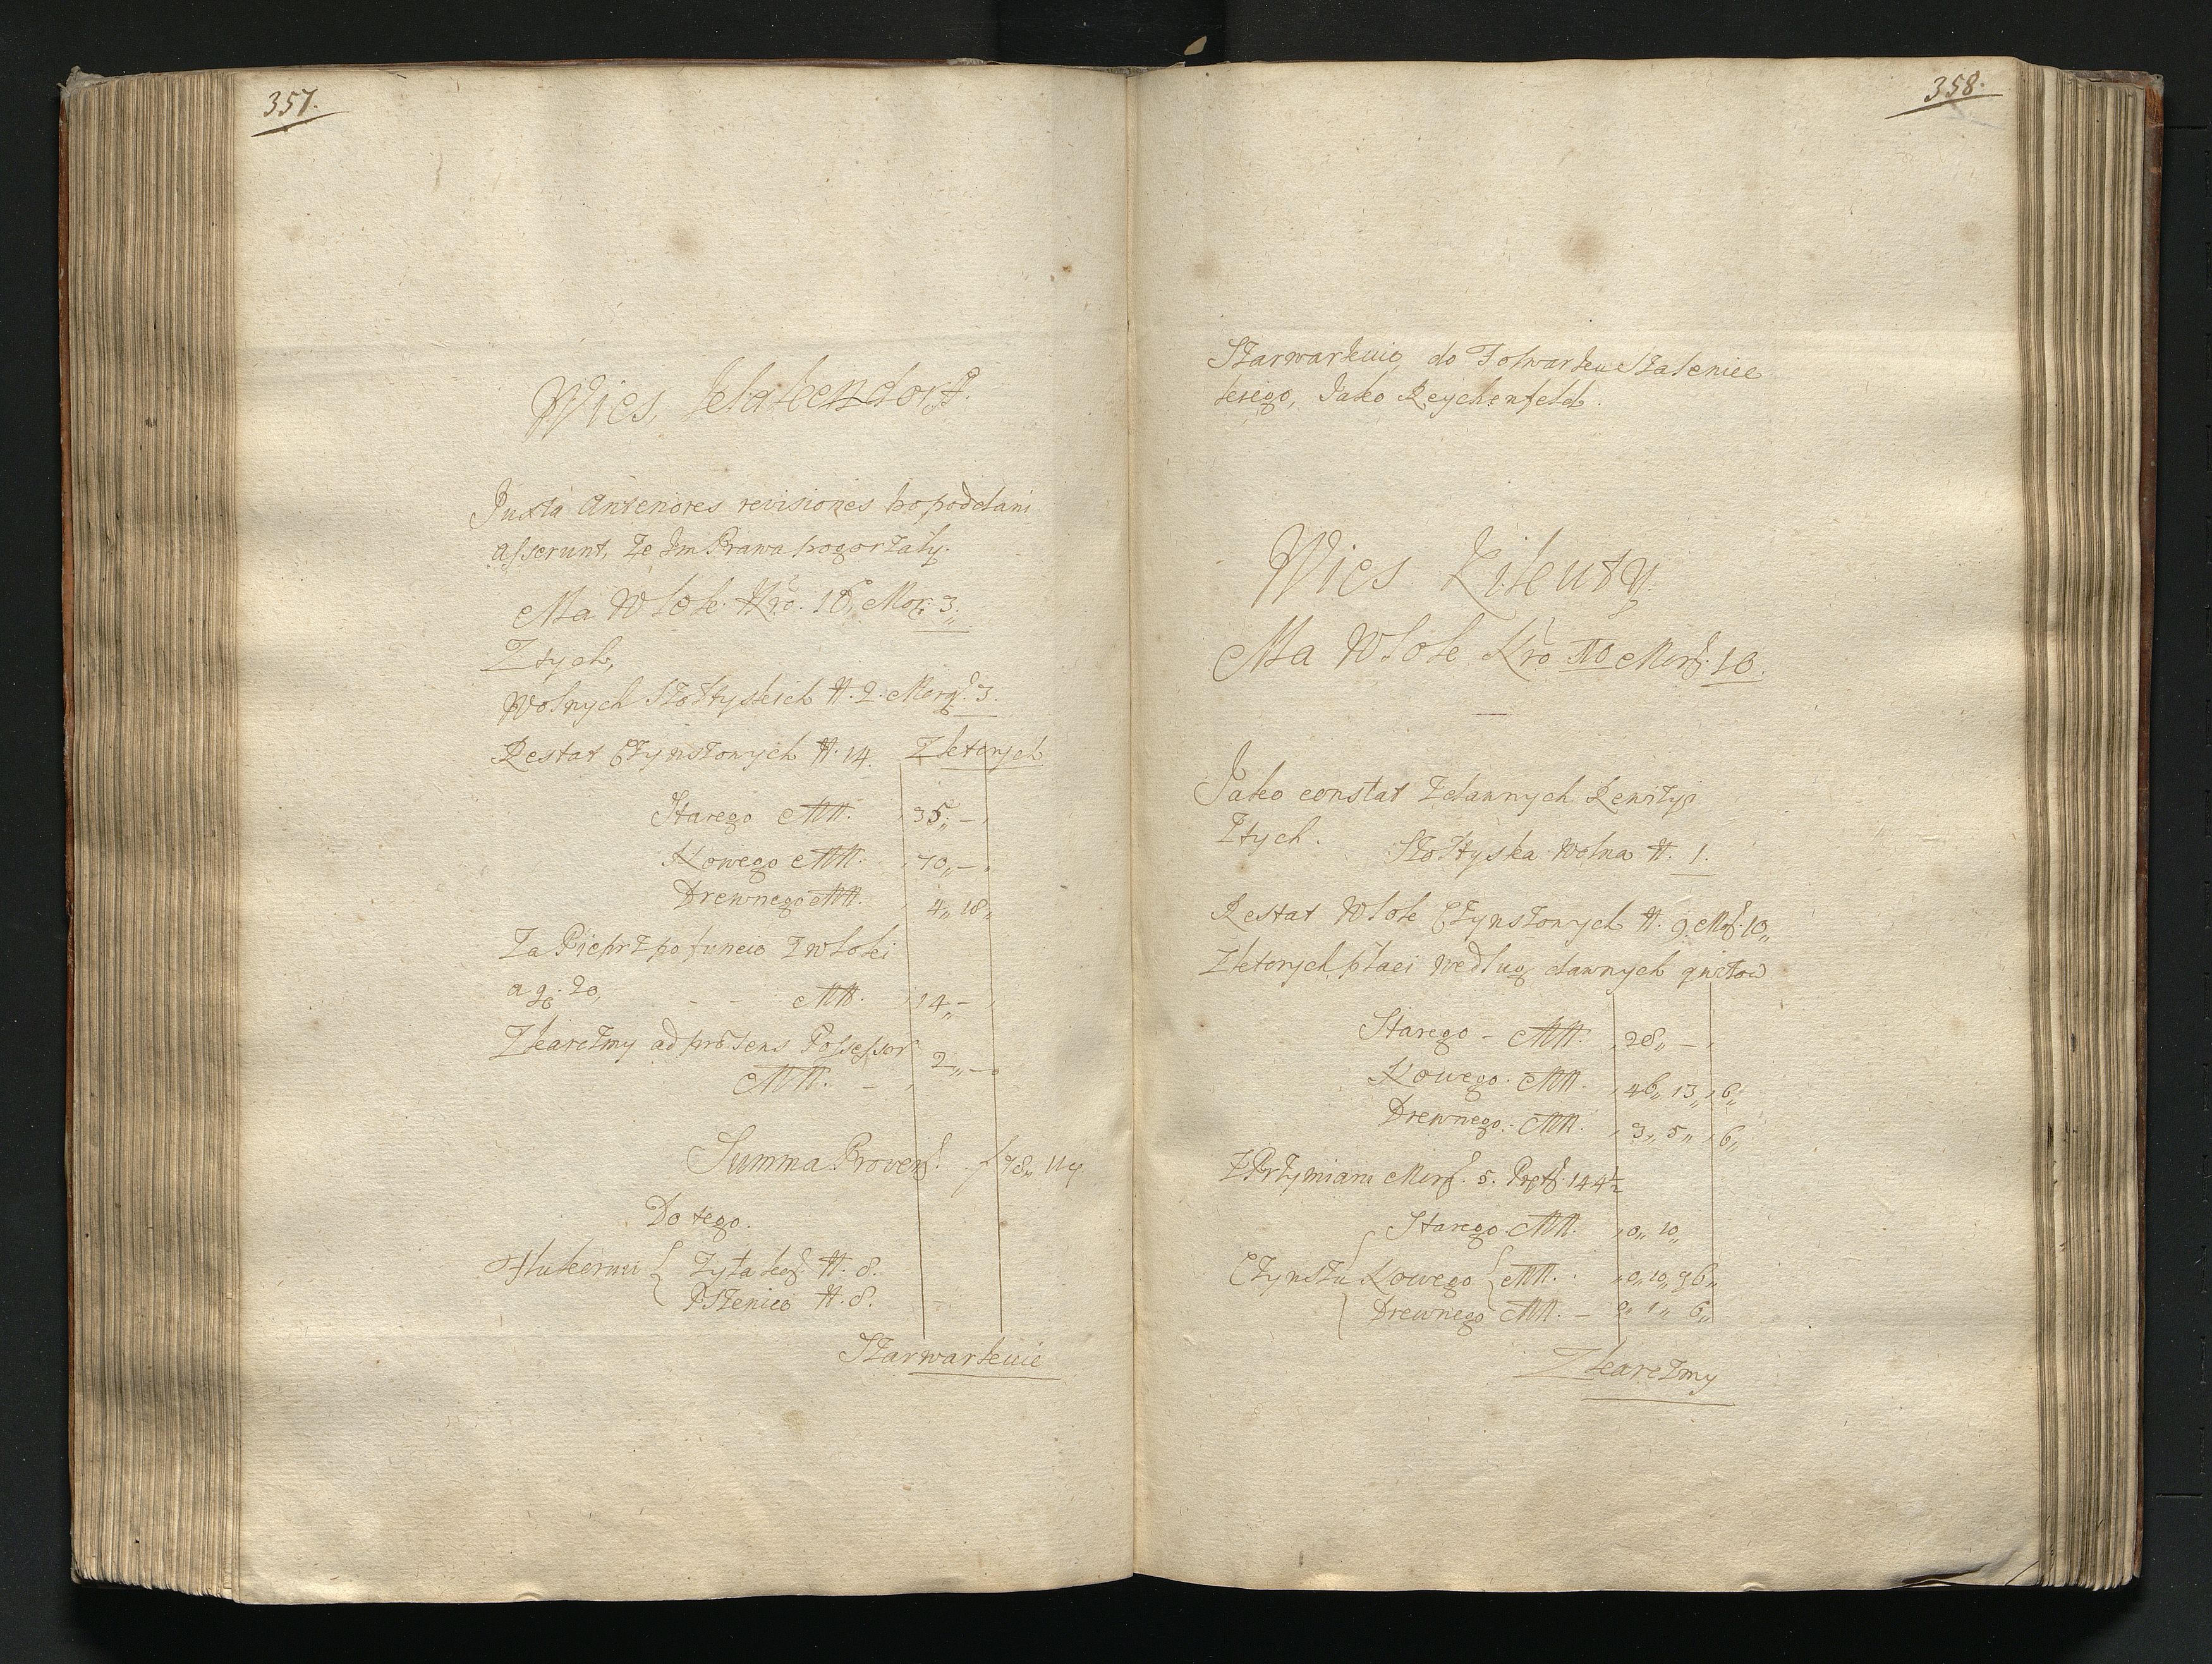 357.
Wies, Klakendorff.
Juxta Anteriores revisiones bo poddani
asserunt, Ze Im Prawa pogorzały.
Ma Wlok Nro. 16, Mor: 3„
Z tych,
Wolnych Szołtyskich N. 2. Morg. 3.
Restat Czynszowych N. 14. Zktorych
Starego MN. 35„ —
Nowego MN. 70„ —
Drewnego MN. 4„ 18„
Za Pieprz po funcie z włoki
a g. 20, - - MN. 14„ —
Zkarczmy ad præsens Possessor
MN. — 2„ —
Summa Proven. f 78„ 11 q.
Do tego.
Hukorni { Zyta kor. N. 8.
Pszenice N. 8.
Szarwarkuie
358.
Szarwarkuio do Folwarku Kaleniec
kiego, Jako Reychenfeld.
Wies Kikuty.
Ma Wlok Nro 10 Morg. 10.
Jako constat zdawnych Rewizyi
Ztych.
Szołtyska Wolna N. 1.
Restat Wlok Czynszowych N. 9. Mor. 10„
Zktorych płaci Według dawnych qwitow
Starego - MN. 28„ —
Nowego. MN. 46„ 13„ 6„
Drewnego. MN. 3„ 5„ 6„
Z Przymiaru Morg. 5. Pręt. 144½
Starego MN. 0„ 10„
Czynszu Nowego { MN. : 0„ 10„ 96„
Drewnego MN. — 0„ 1„ 6„
Zkarczmy